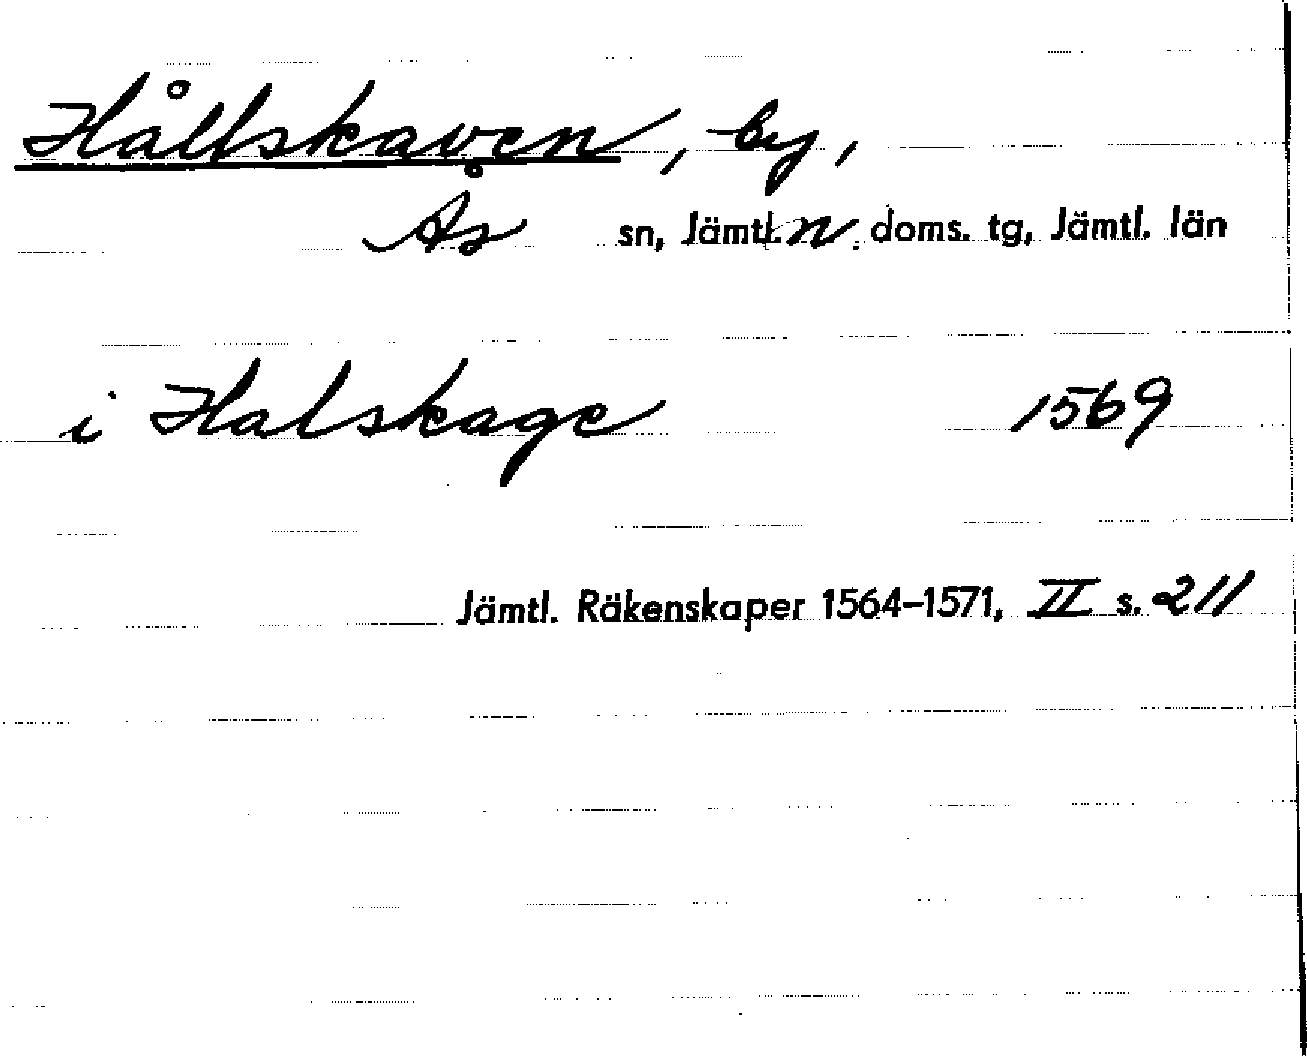 Hållskaven, by,
Ås sn, Jämtl. n. doms. tg, Jämtl. län
i Halskage 1569
Jämtl. Räkenskaper 1564-1571, II s. 211